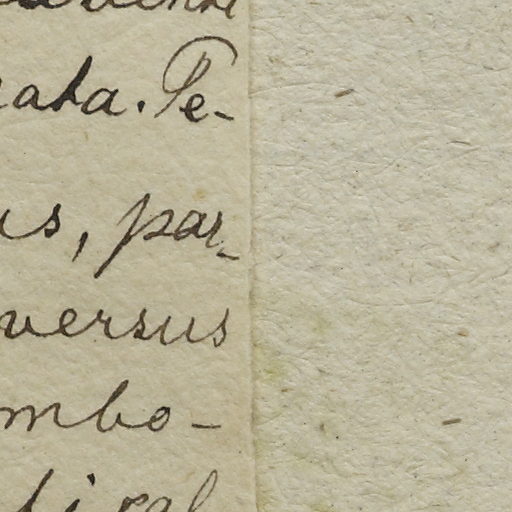 ata. Pe-
us, par-
versus
mbo-